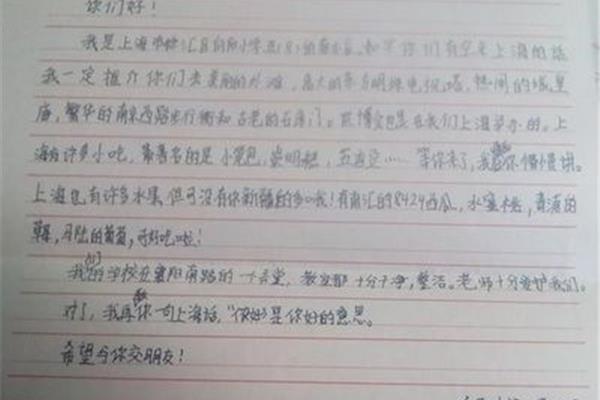 你们好！
我是上海市徐汇区向阳小学五(8)的 如果你们有空来上海的话
我一定推介你们去美丽的外滩，高大的东方明珠电视塔，热闹的城皇
庙，繁华的南京西路步行街和古老的石库门。世博会也是在我们上海举办的。上
海有许多小吃，最著名的是小笼包，崇明糕，五香豆……等你来了，我 你慢慢填。
上海也有许多水果，但可没有你新疆的多哦！有南汇的8424西瓜，水蜜桃，青浦的
草莓，马陆的葡萄，可好吃啦！
我们的学校在襄阳南路的一个弄堂，教室都十分干净，整洁。老师十分爱护我们。
对了，我再教你一句上海话，“侬好”是你好的意思。
希望与你交朋友！